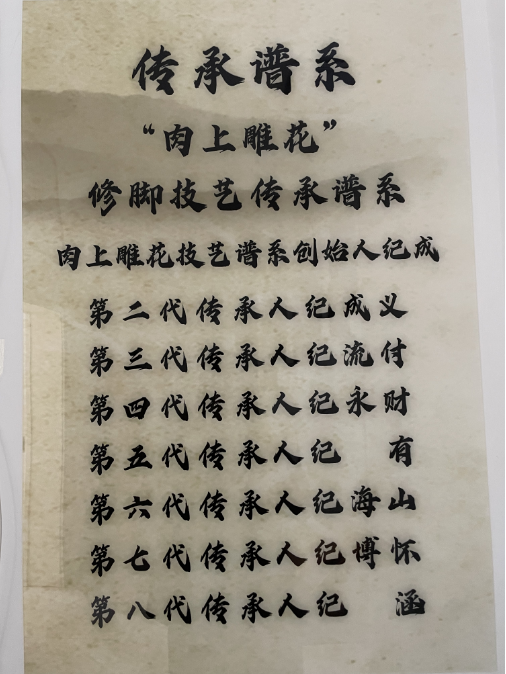 传承谱系
“肉上雕花”
修脚技艺传承谱系
肉上雕花技艺谱系创始人纪成
第二代传承人纪成义
第三代传承人纪流付
第四代传承人纪永财
第五代传承人纪 有
第六代传承人纪海山
第七代传承人纪博怀
第八代传承人纪 涵